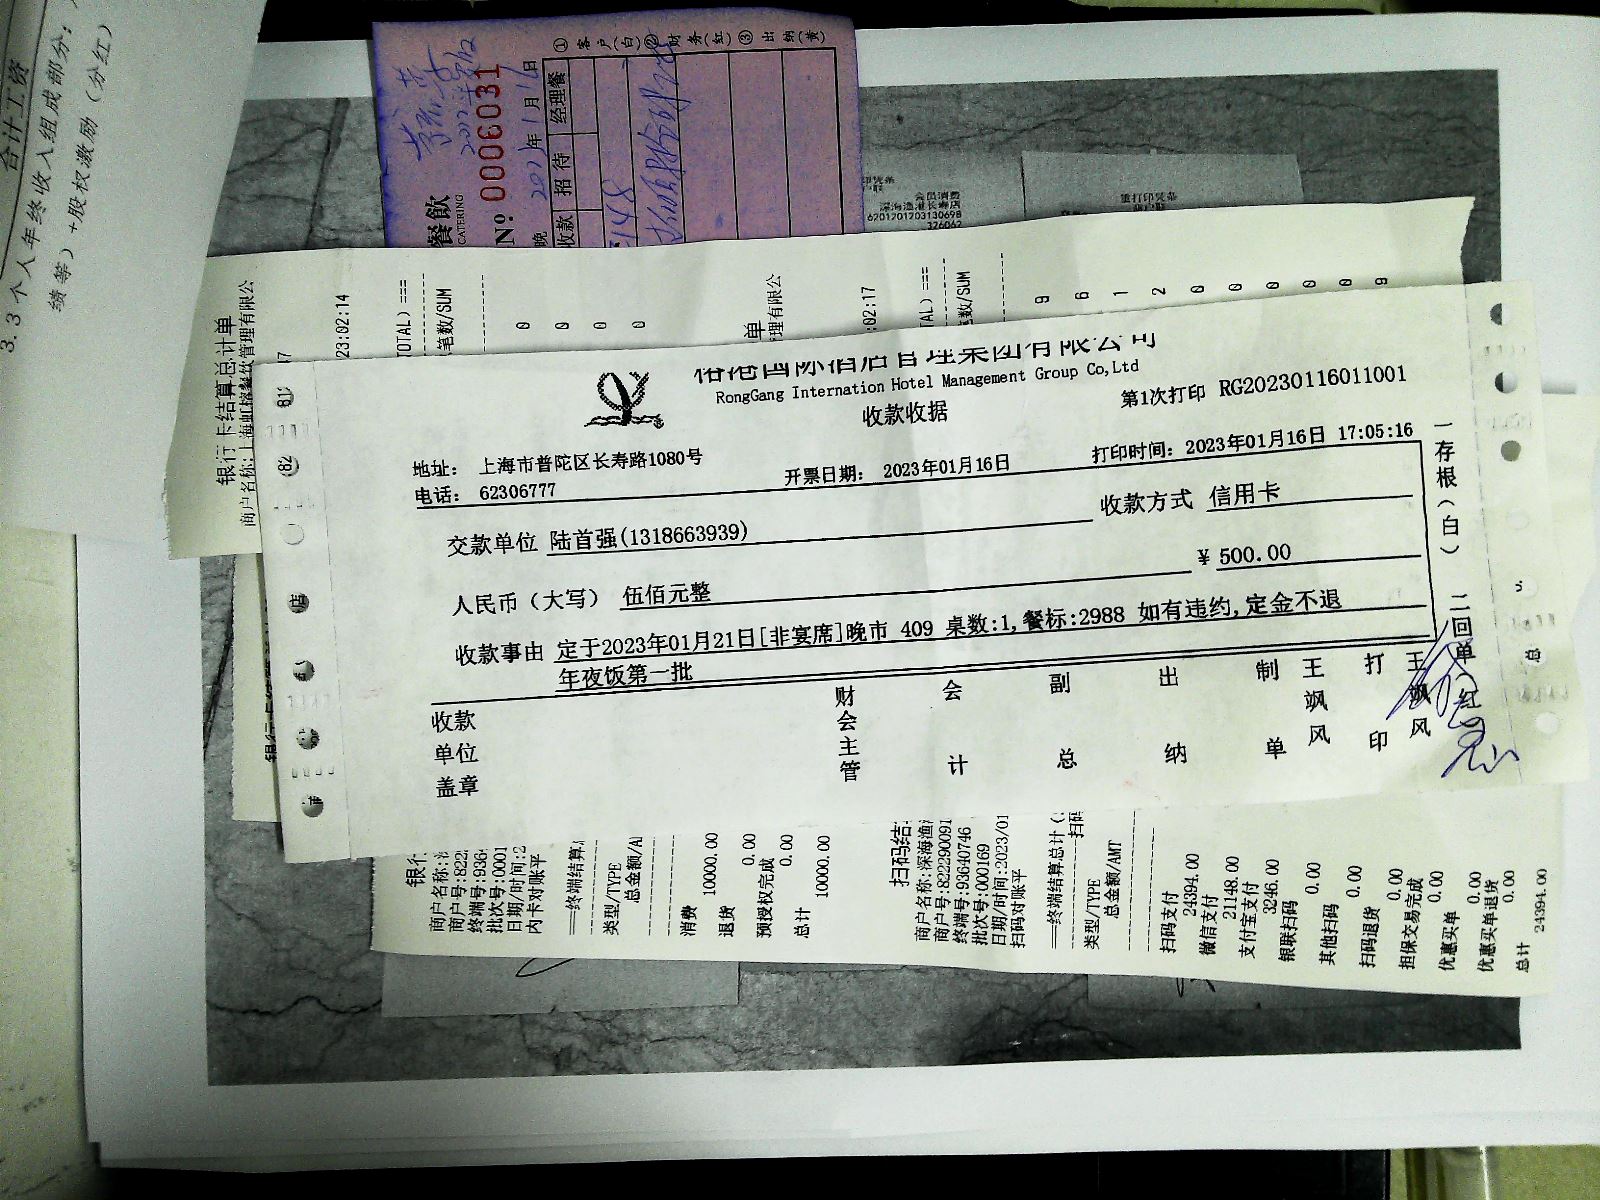 合计工资
3.3 个人年终收入组成部分:
绩等) +股权激励 (分红)
餐飲
CATERING
No: 0006031
2023年1月16日
晚
收款 招待 经理餐
① 客户(白) ② 财务(红) ③ 出纳(黄)
会员消费
深海渔港长寿店
6201201203130698
326062
重打印凭条
银行卡结算总计单
商户名称:上海虹榕餐饮管理有限公
23:02:14
TOTAL) ===
笔数/SUM
0
0
0
0
单
理有限公
:02:17
TAL) ===
总数/SUM
9
6
1
2
0
0
0
0
0
9
榕港国际酒店管理集团有限公司
RongGang Internation Hotel Management Group Co,Ltd
收款收据
第1次打印 RG20230116011001
地址: 上海市普陀区长寿路1080号
电话: 62306777
开票日期: 2023年01月16日
打印时间: 2023年01月16日 17:05:16
交款单位 陆首强(1318663939)
收款方式 信用卡
人民币(大写) 伍佰元整
¥ 500.00
收款事由 定于2023年01月21日[非宴席]晚市 409 桌数:1,餐标:2988 如有违约,定金不退
年夜饭第一批
收款单位盖章
财会主管
会计
副总
出纳
制单
王飒风
打印
王飒风
一存根(白) 二回单(红)
总
银行
商户名称:
商户号:822
终端号:936
批次号:0001
日期/时间:2
内卡对账平
==终端结算
类型/TYPE
总金额/A
消费 10000.00
退货 0.00
预授权完成 0.00
总计 10000.00
扫码结
商户名称:深海渔
商户号:822290091
终端号:93640746
批次号:000169
日期/时间:2023/01
扫码对账平
==终端结算总计(
扫码
类型/TYPE
总金额/AMT
扫码支付 24394.00
微信支付 21148.00
支付宝支付 3246.00
银联扫码 0.00
其他扫码 0.00
扫码退货 0.00
担保交易完成 0.00
优惠买单 0.00
优惠买单退货 0.00
总计 24394.00